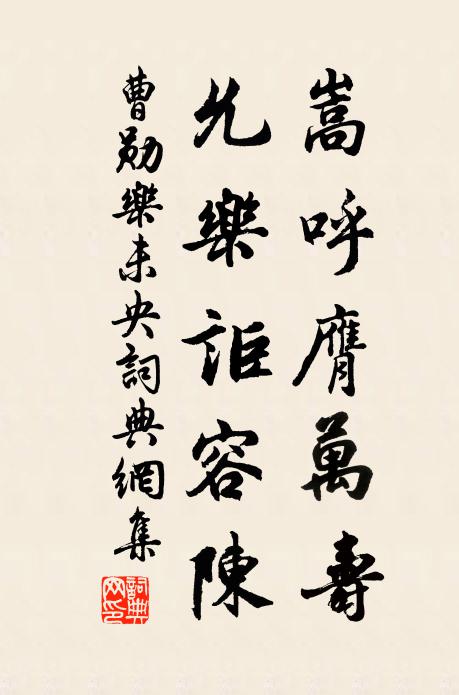 嵩呼膺萬壽
允樂詎容陳
曹勛樂未央詞典網集
詞典网印